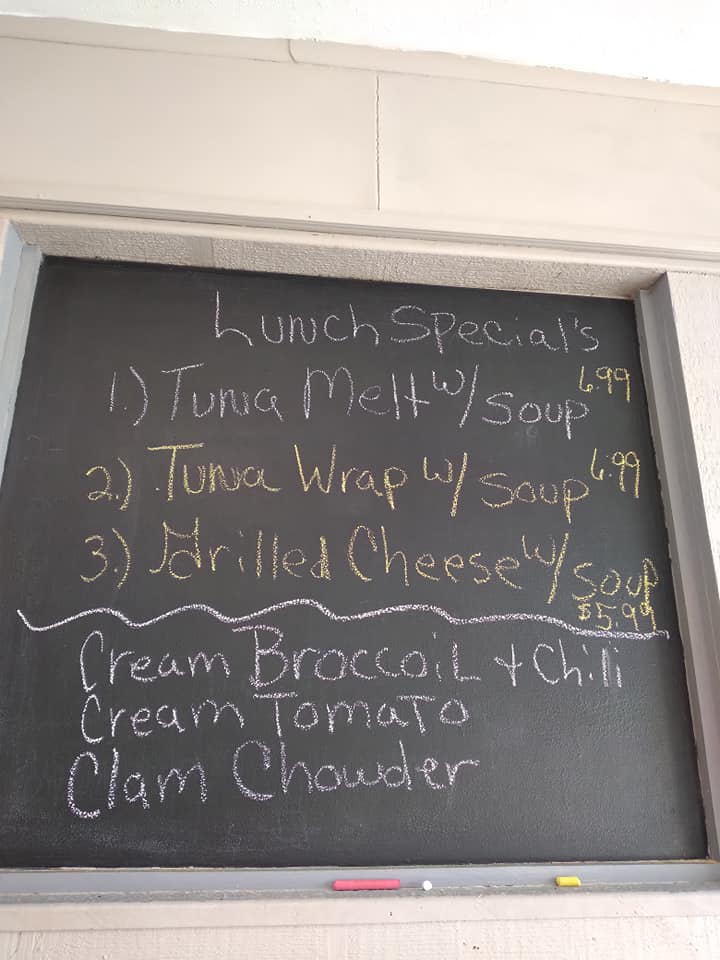 Lunch Special's
1.) Tuna Melt w/ Soup 6.99
2.) Tuna Wrap w/ Soup 6.99
3.) Grilled Cheese w/ Soup
$5.99
Cream Broccoil + Chili
Cream Tomato
Clam Chowder